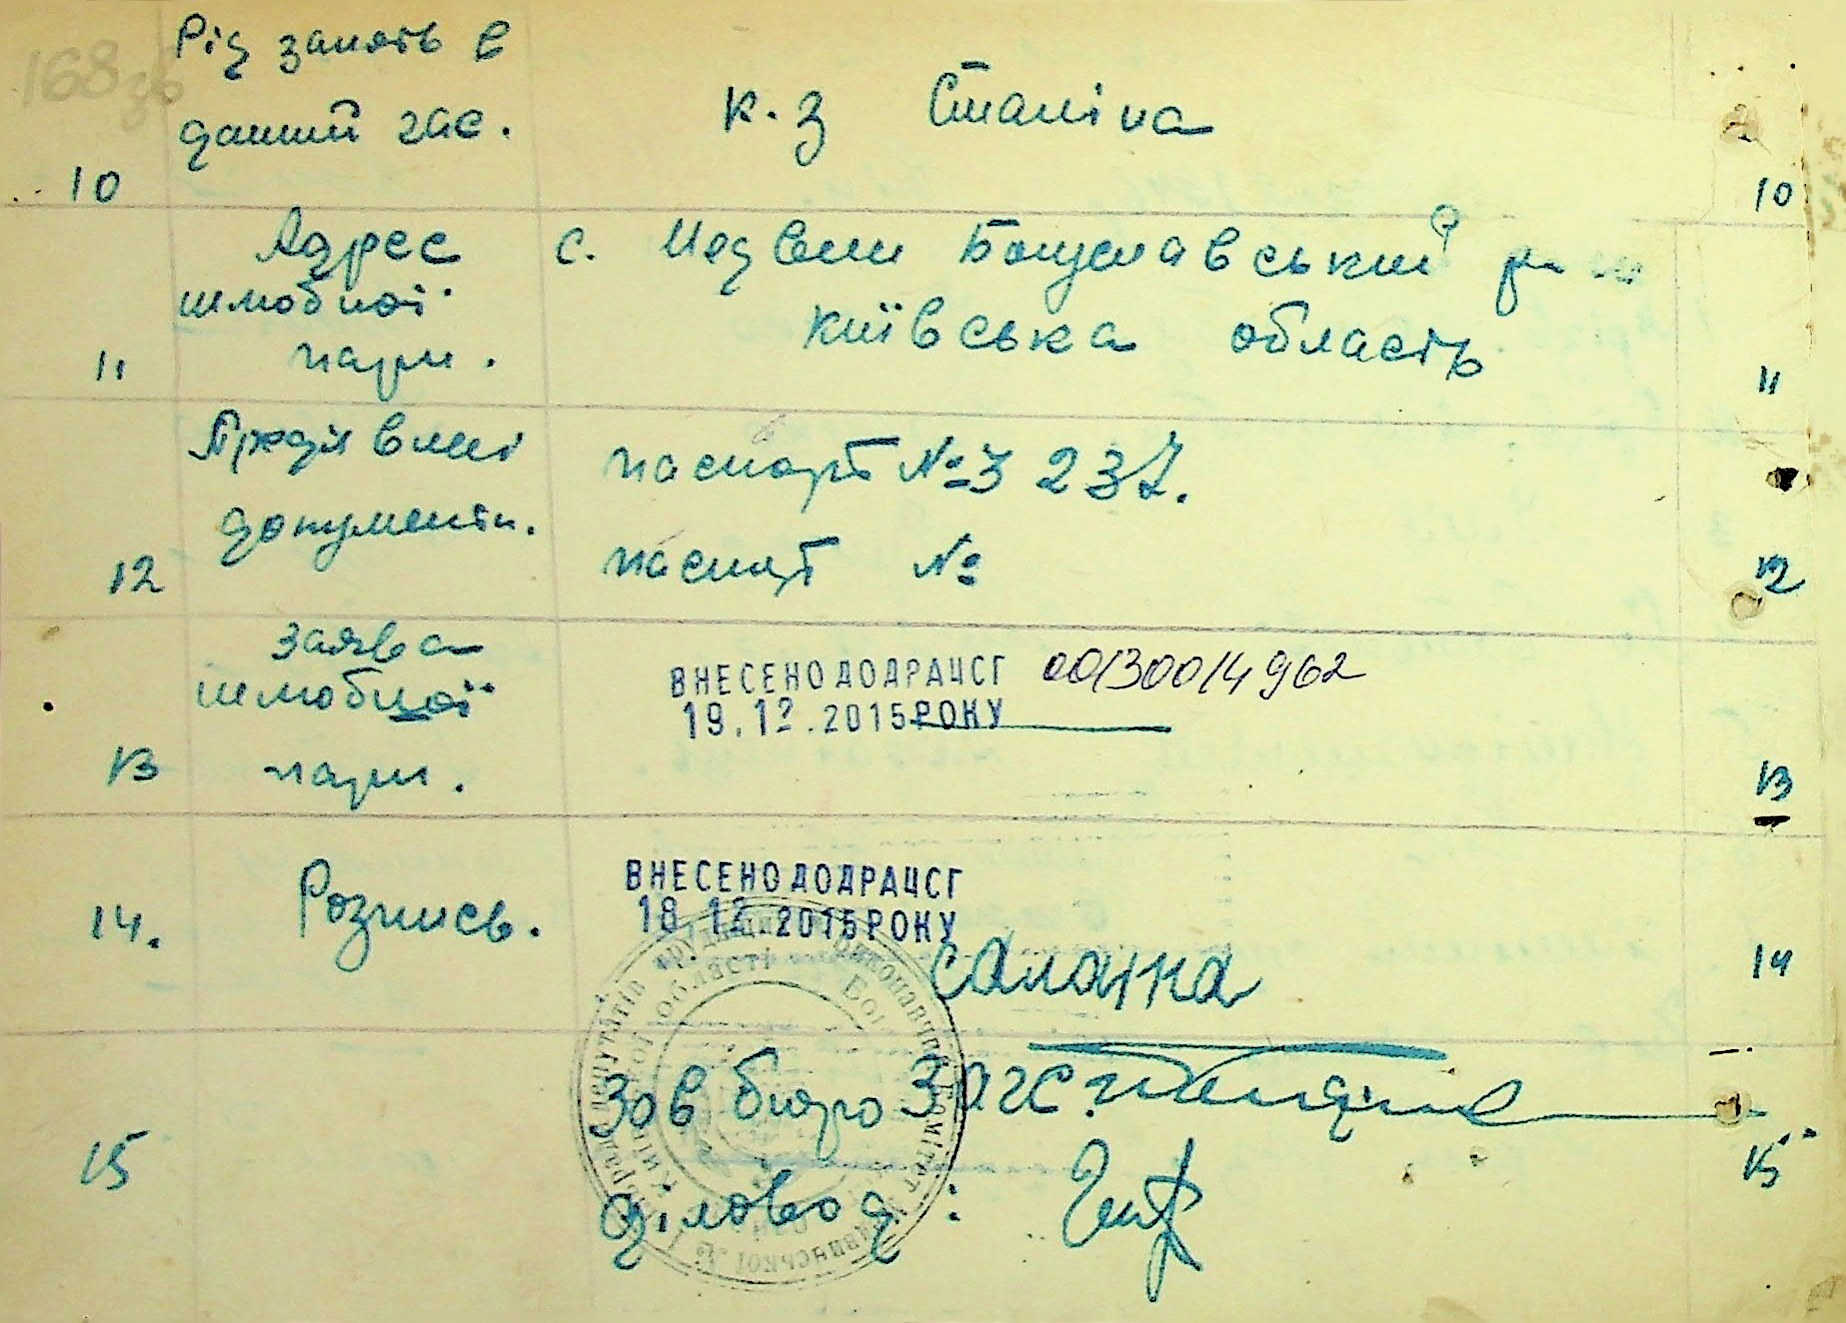 168 зв
Рід занять в
даний час.
к. з Сталіна
10
10
Адрес
шлюбної
пари.
с. Медвен Богуславський
Київська область
11
11
Предʼявлені
документи.
паспорт № 3 237.
паспорт №
12
12
Заява
шлюбної
пари.
ВНЕСЕНО ДО ДРАЦСГ 00130014962
19.12.2015 РОКУ
13
13
Розпись.
ВНЕСЕНО ДО ДРАЦСГ
18 12 2015 РОКУ
14.
14
Зав бюро ЗАГС
15
15
Діловод: